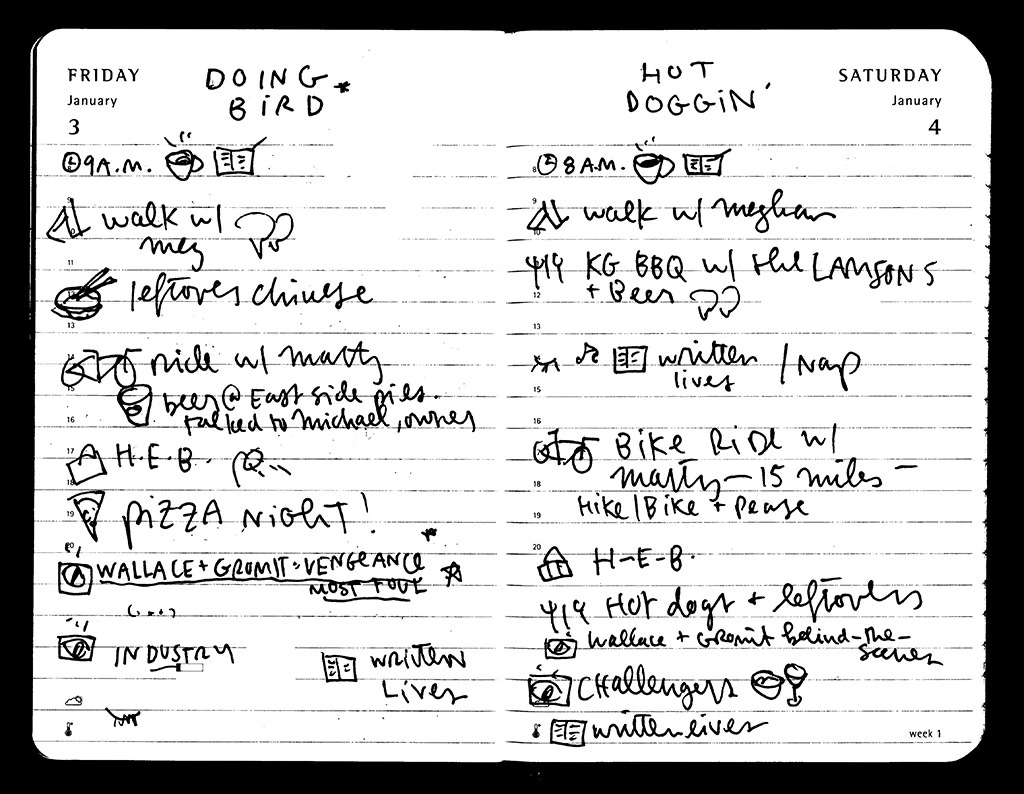 FRIDAY
January
3
DOING
BIRD
9 A.M.
walk w/
meg
leftover chinese
ride w/ matty
beer @ East side pies.
talked to michael, owner
H.E.B.
PIZZA NIGHT!
WALLACE + GROMIT: VENGEANCE
MOST FOWL
INDUSTRY
written
Lives
HOT
DOGGIN'
SATURDAY
January
4
8 A.M.
walk w/ meghan
KG BBQ w/ the LAMSONS
+ Beer
written
lives
/ Nap
BIKE RIDE w/
matty - 15 miles -
Hike/Bike + Pease
H-E-B.
Hot dogs + leftovers
Wallace + Gromit behind-the-
scenes
CHALLENGERS
written lives
week 1
9
10
11
12
13
15
16
17
18
19
20
8
9
10
12
13
15
16
18
19
20